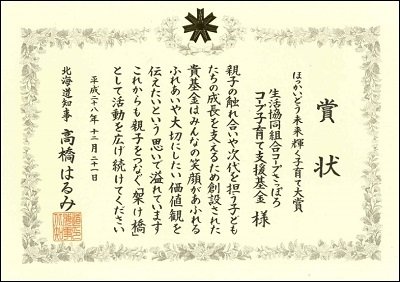 賞状
ほっかいどう未来輝く子育て大賞
生活協同組合コープさっぽろ
コープ子育て支援基金 様
親子の触れ合いや次代を担う子ども
たちの成長を支えるため創設された
貴基金はみんなの笑顔があふれる
ふれあいや大切にしたい価値観を
伝えたいという思いで溢れています
これからも親子をつなぐ「架け橋」
として活動を広げ続けてください
平成二十八年十二月二十一日
北海道知事 高橋はるみ